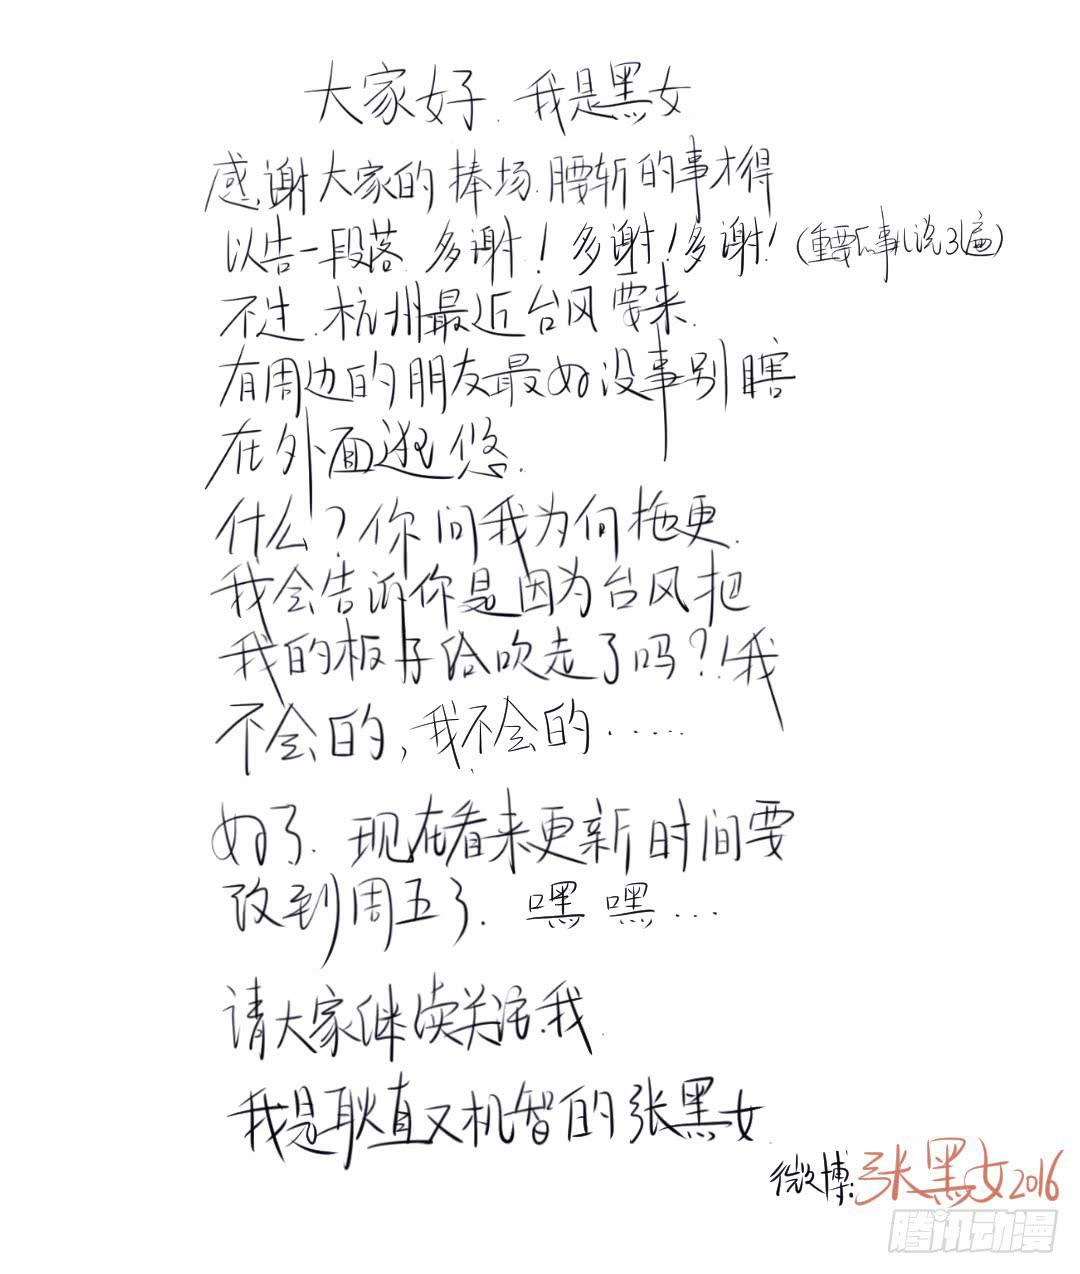 大家好.我是黑女
感谢大家的捧场.腰斩的事才得
以告一段落.多谢!多谢!多谢!(重要的事儿说3遍)
不过.杭州最近台风要来.
有周边的朋友最好没事别瞎
在外面逛悠.
什么?你问我为何拖更.
我会告诉你是因为台风把
我的板子给吹走了吗?!我
不会的,我不会的......
好了.现在看来更新时间要
改到周五了.嘿嘿...
请大家继续关注我.
我是耿直又机智的张黑女.
微博:张黑女2016
腾讯动漫